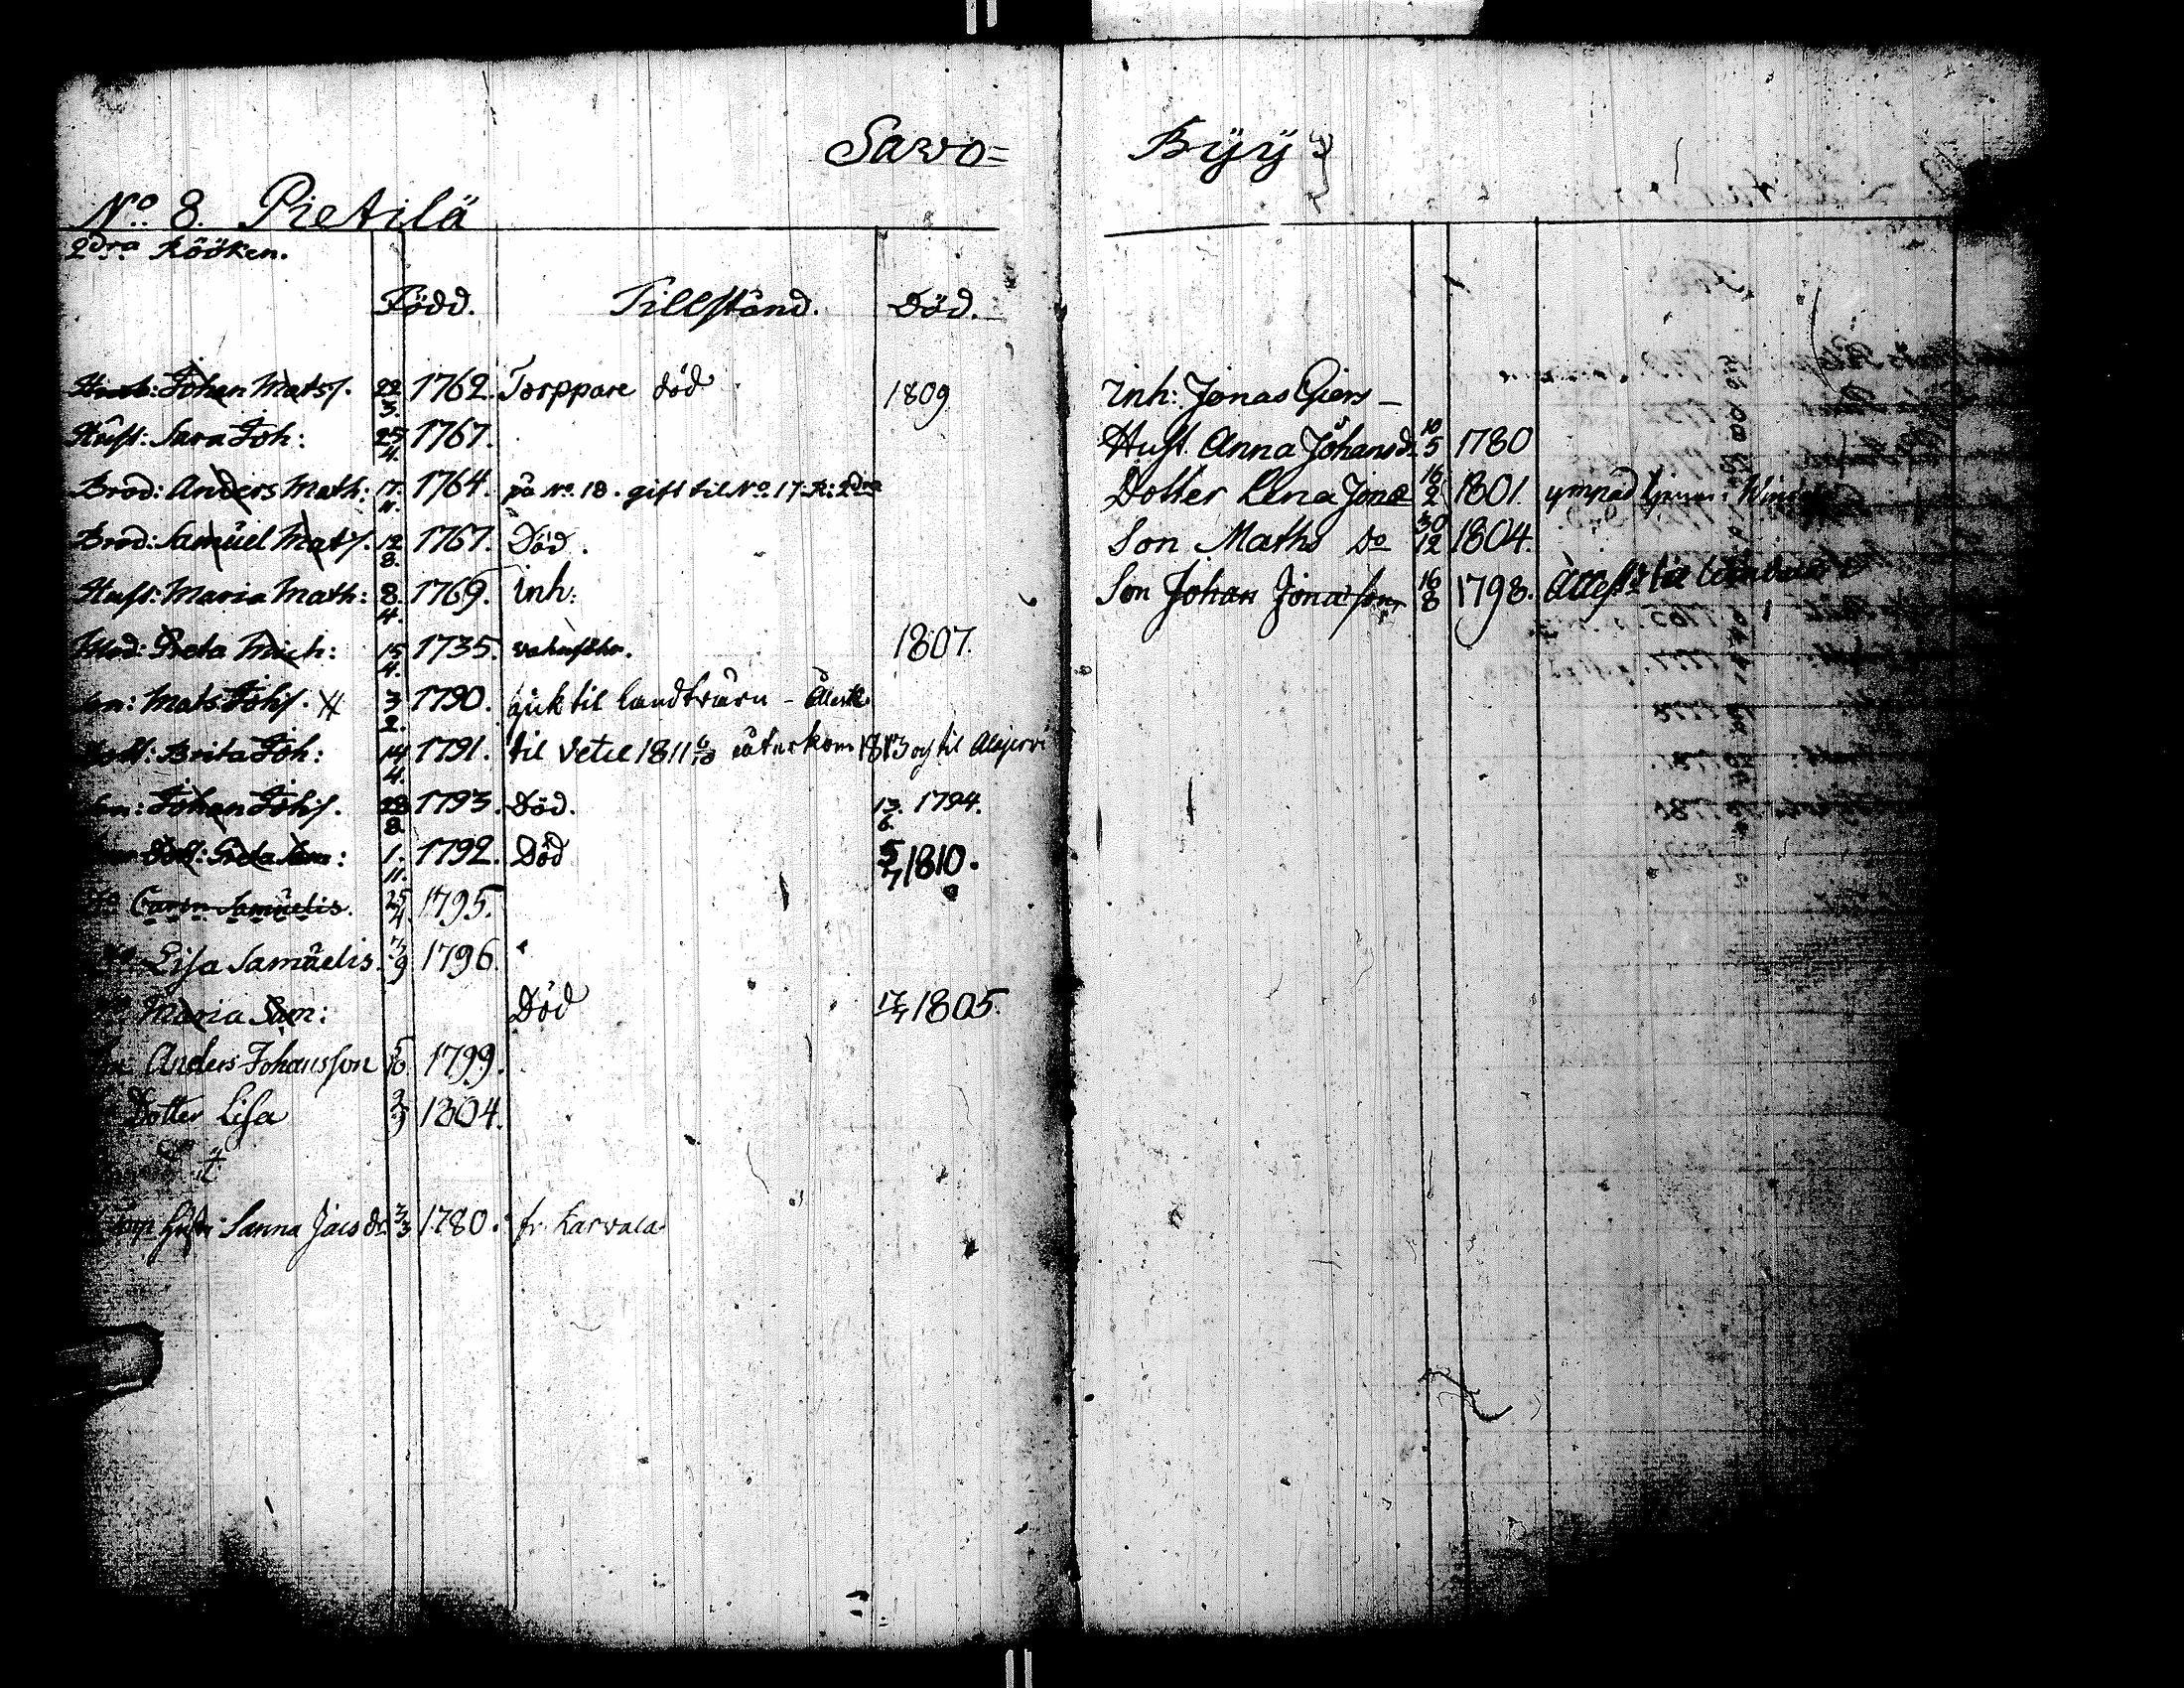 Sawo=
Byÿ
No 8. Pietilä
2dra Rööken.
Född. Tillstånd. Död.
Johan Matsſ. 22/3. 1762. Torppare död 1809
Huſt: Sara Joh: 25/4. 1767.
Brod: Anders Math: 17/11. 1764. på No. 18. gift til No. 17. R: 2dra
Brod: Samuel Matſ. 12/8. 1767. Död.
Huſt: Maria Math: 8./4. 1769. inh:
Mod: Greta Mich: 15/4. 1735. 1807.
Mats Johſ. 3/2. 1790. gick til landtvärn
Brita Joh: 14/4. 1791. til Vetil 1811 återkom 1813 og til Alajervi
Johan Johſ. 28/8 1793. Död. 13./6. 1794.
Dott: Greta Sam: 1./11. 1792. Död 5/7 1810.
Carin Samuelis. 25/4. 1795.
Liſa Samuelis. 7/9 1796.
Maria Sam: Död 17/7 1805.
Anders Johansſon 5/10. 1799.
Dotter Liſa 1804.
Sanna Jacsdr. 3/3 1780. fr. Karvala
inh: Jonas Giers –
Huſt. Anna Johansd. 10/5 1780
Dotter Lena Jonæ 16/2 1801. ympad
Son Maths Do 30/12 1804.
Son Johan Jonasſon 16/8 1798.